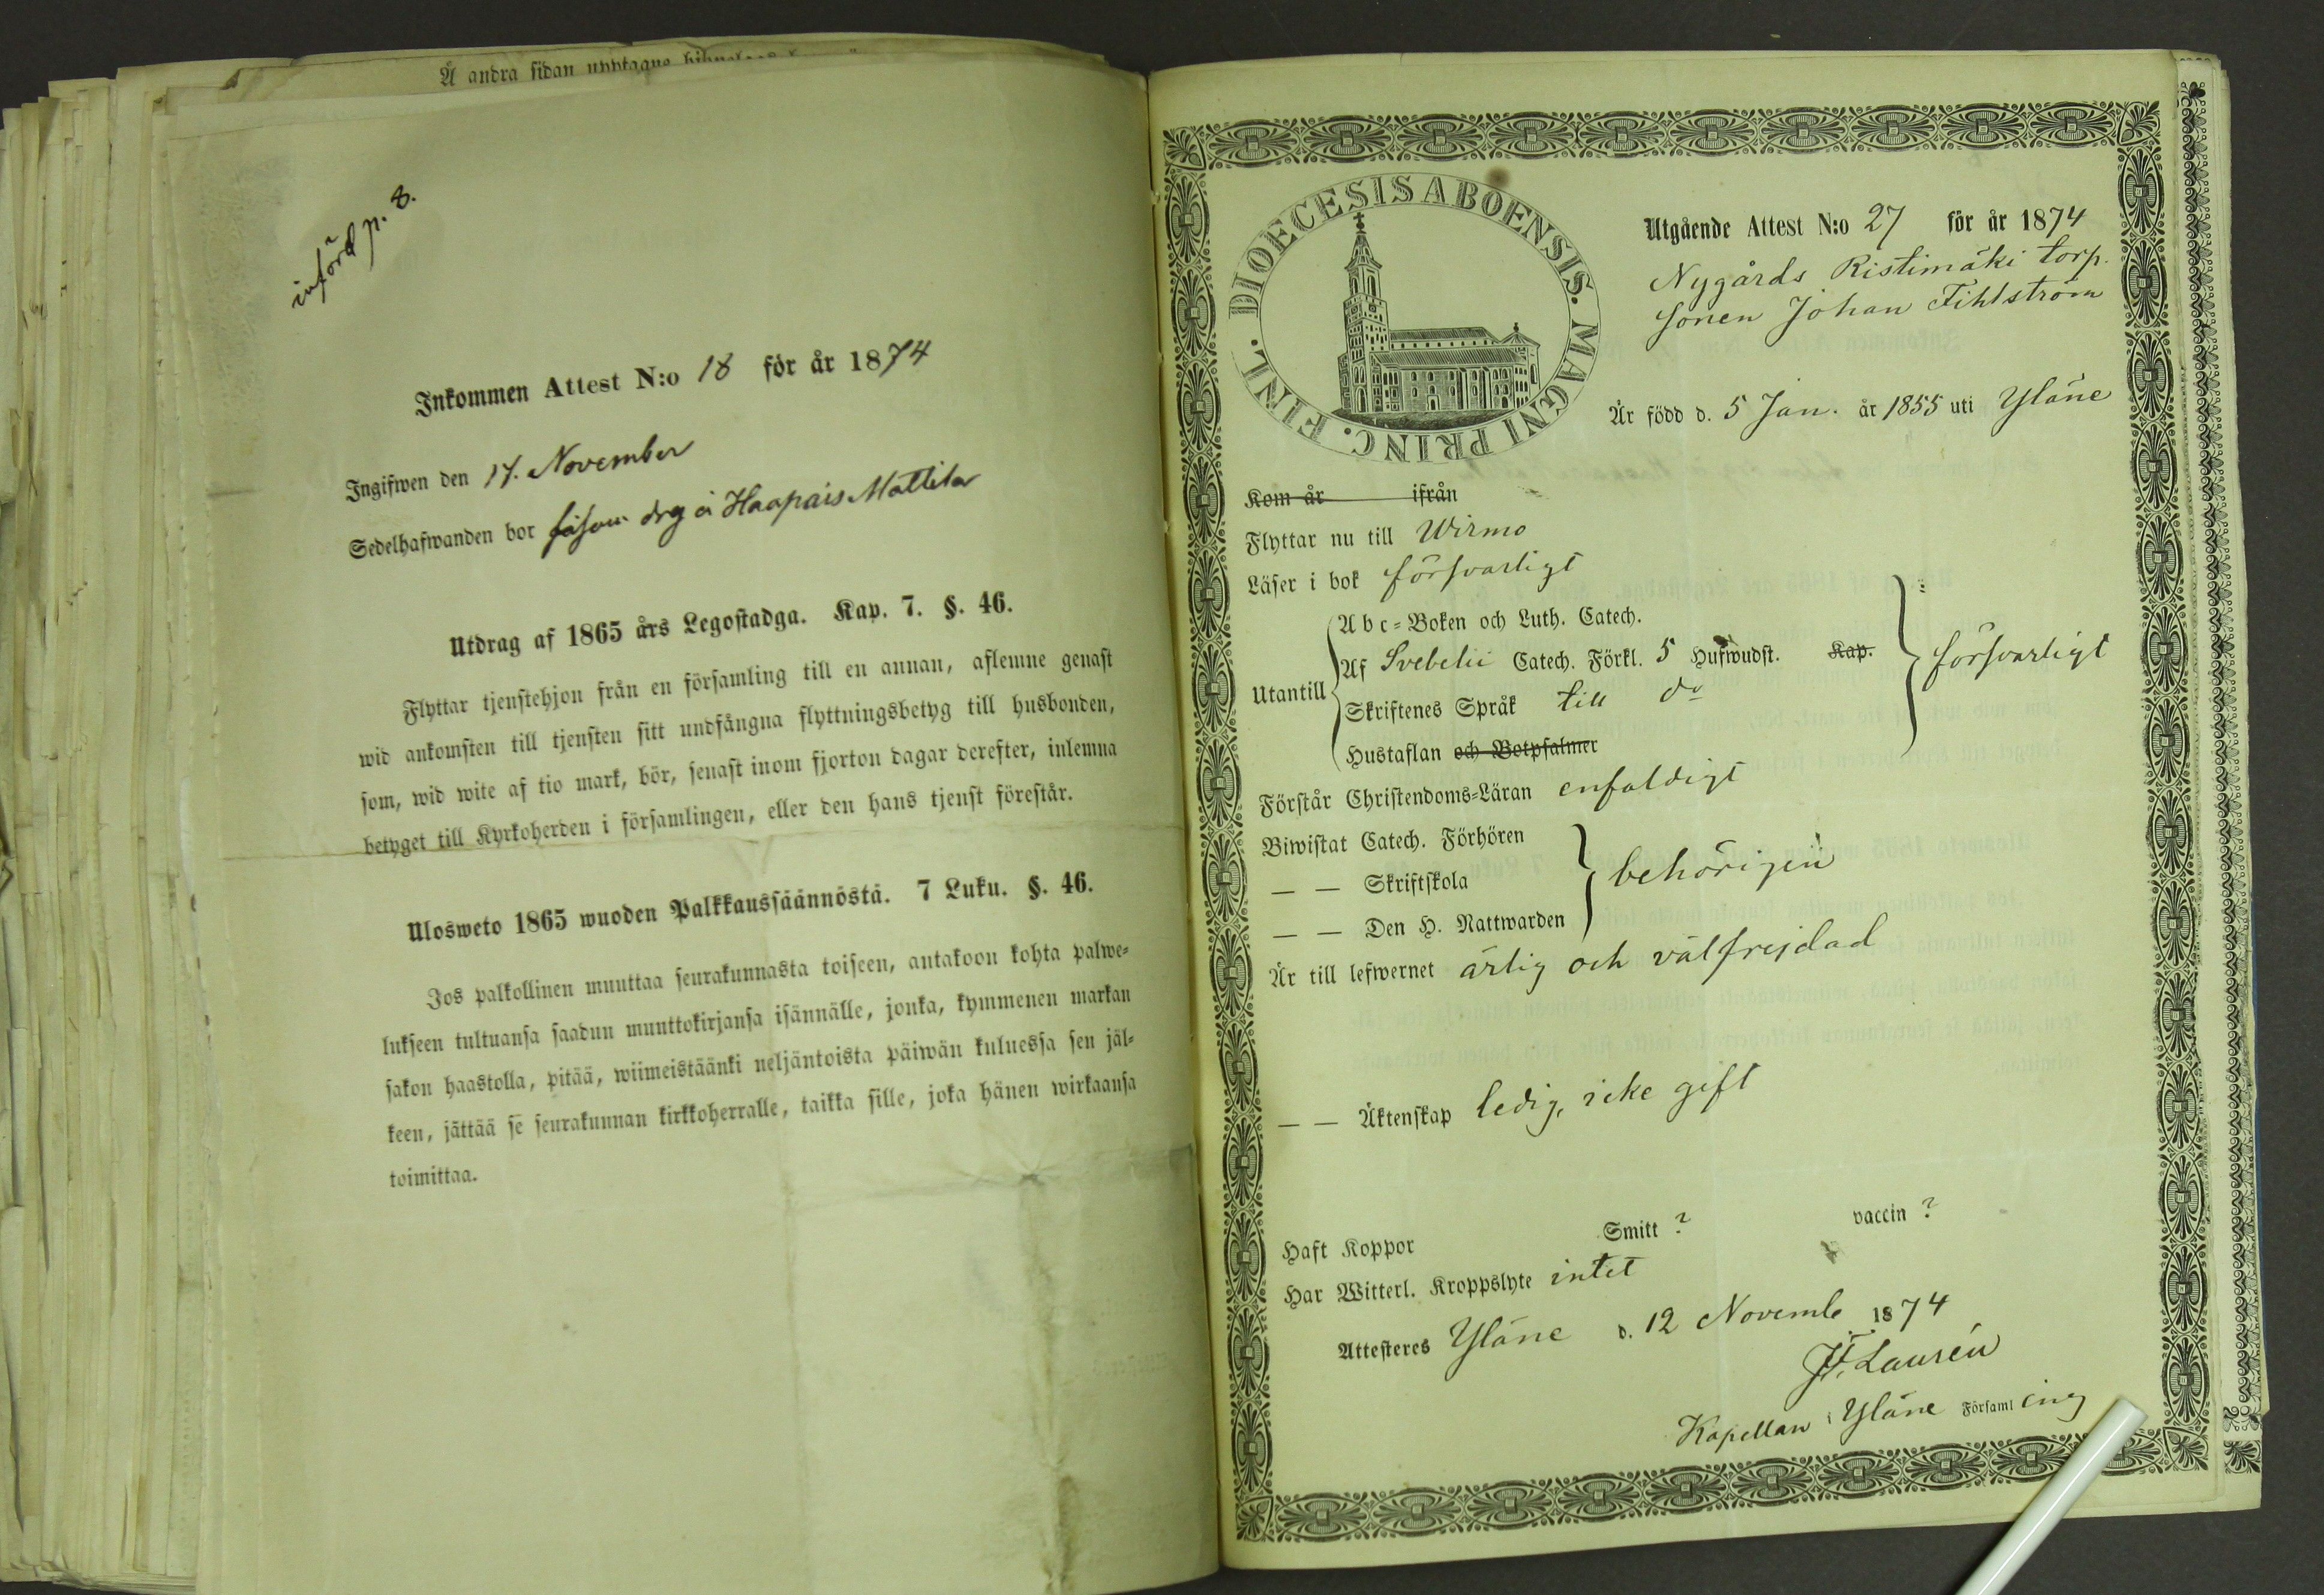 Å andra sidan upptagne
införd p. 8.
Inkommen Attest N:o 18 för år 1874
Ingifwen den 17. November
Sedelhafwanden bor såsom drg å Haapais Mattila
Utdrag af 1865 års Legostadga. Kap. 7. §. 46.
Flyttar tjenstehjon från en församling till en annan, aflemne genast
wid ankomsten till tjensten sitt undfångna flyttningsbetyg till husbonden,
som, wid wite af tio mark, bör, senast inom fjorton dagar derefter, inlemna
betyget till Kyrkoherden i församlingen, eller den hans tjenst förestår.
Ulosweto 1865 wuoden Palkkaussäännöstä. 7 Luku. §. 46.
Jos palkollinen muuttaa seurakunnasta toiseen, antakoon kohta palwe-
lukseen tultuansa saadun muuttokirjansa isännälle, jonka, kymmenen markan
sakon haastolla, pitää, wiimeistäänki neljäntoista päiwän kuluessa sen jäl-
keen, jättää se seurakunnan kirkkoherralle, taikka sille, joka hänen wirkaansa
toimittaa.
DIOECESIS ABOENSIS. MAGNI PRINC. FINL.
Utgående Attest N:o 27 för år 1874
Nygårds Ristimäki torp.
sonen Johan Fihlström
Är född d. 5 Jan. år 1855 uti Yläne
Kom år ifrån
Flyttar nu till Wirmo
Läser i bok försvarligt
Utantill
Abc-Boken och Luth. Catech.
Af Svebelii Catech. Förkl. 5 Hufwudst. Kap.
försvarligt
Skriftenes Språk till do
Hustaflan och Botpsalmer
Förstår Christendoms-Läran enfaldigt
Biwistat Catech. Förhören
— — Skriftskola
behörigen
— — Den H. Nattwarden
Är till lefwernet ärlig och välfrejdad
— — Äktenskap ledig, icke gift
Haft Koppor Smitt ? vaccin ?
Har Witterl. Kroppslyte intet
Attesteres Yläne d. 12 Novemb 1874
Laurén
Kapellan i Yläne Församling